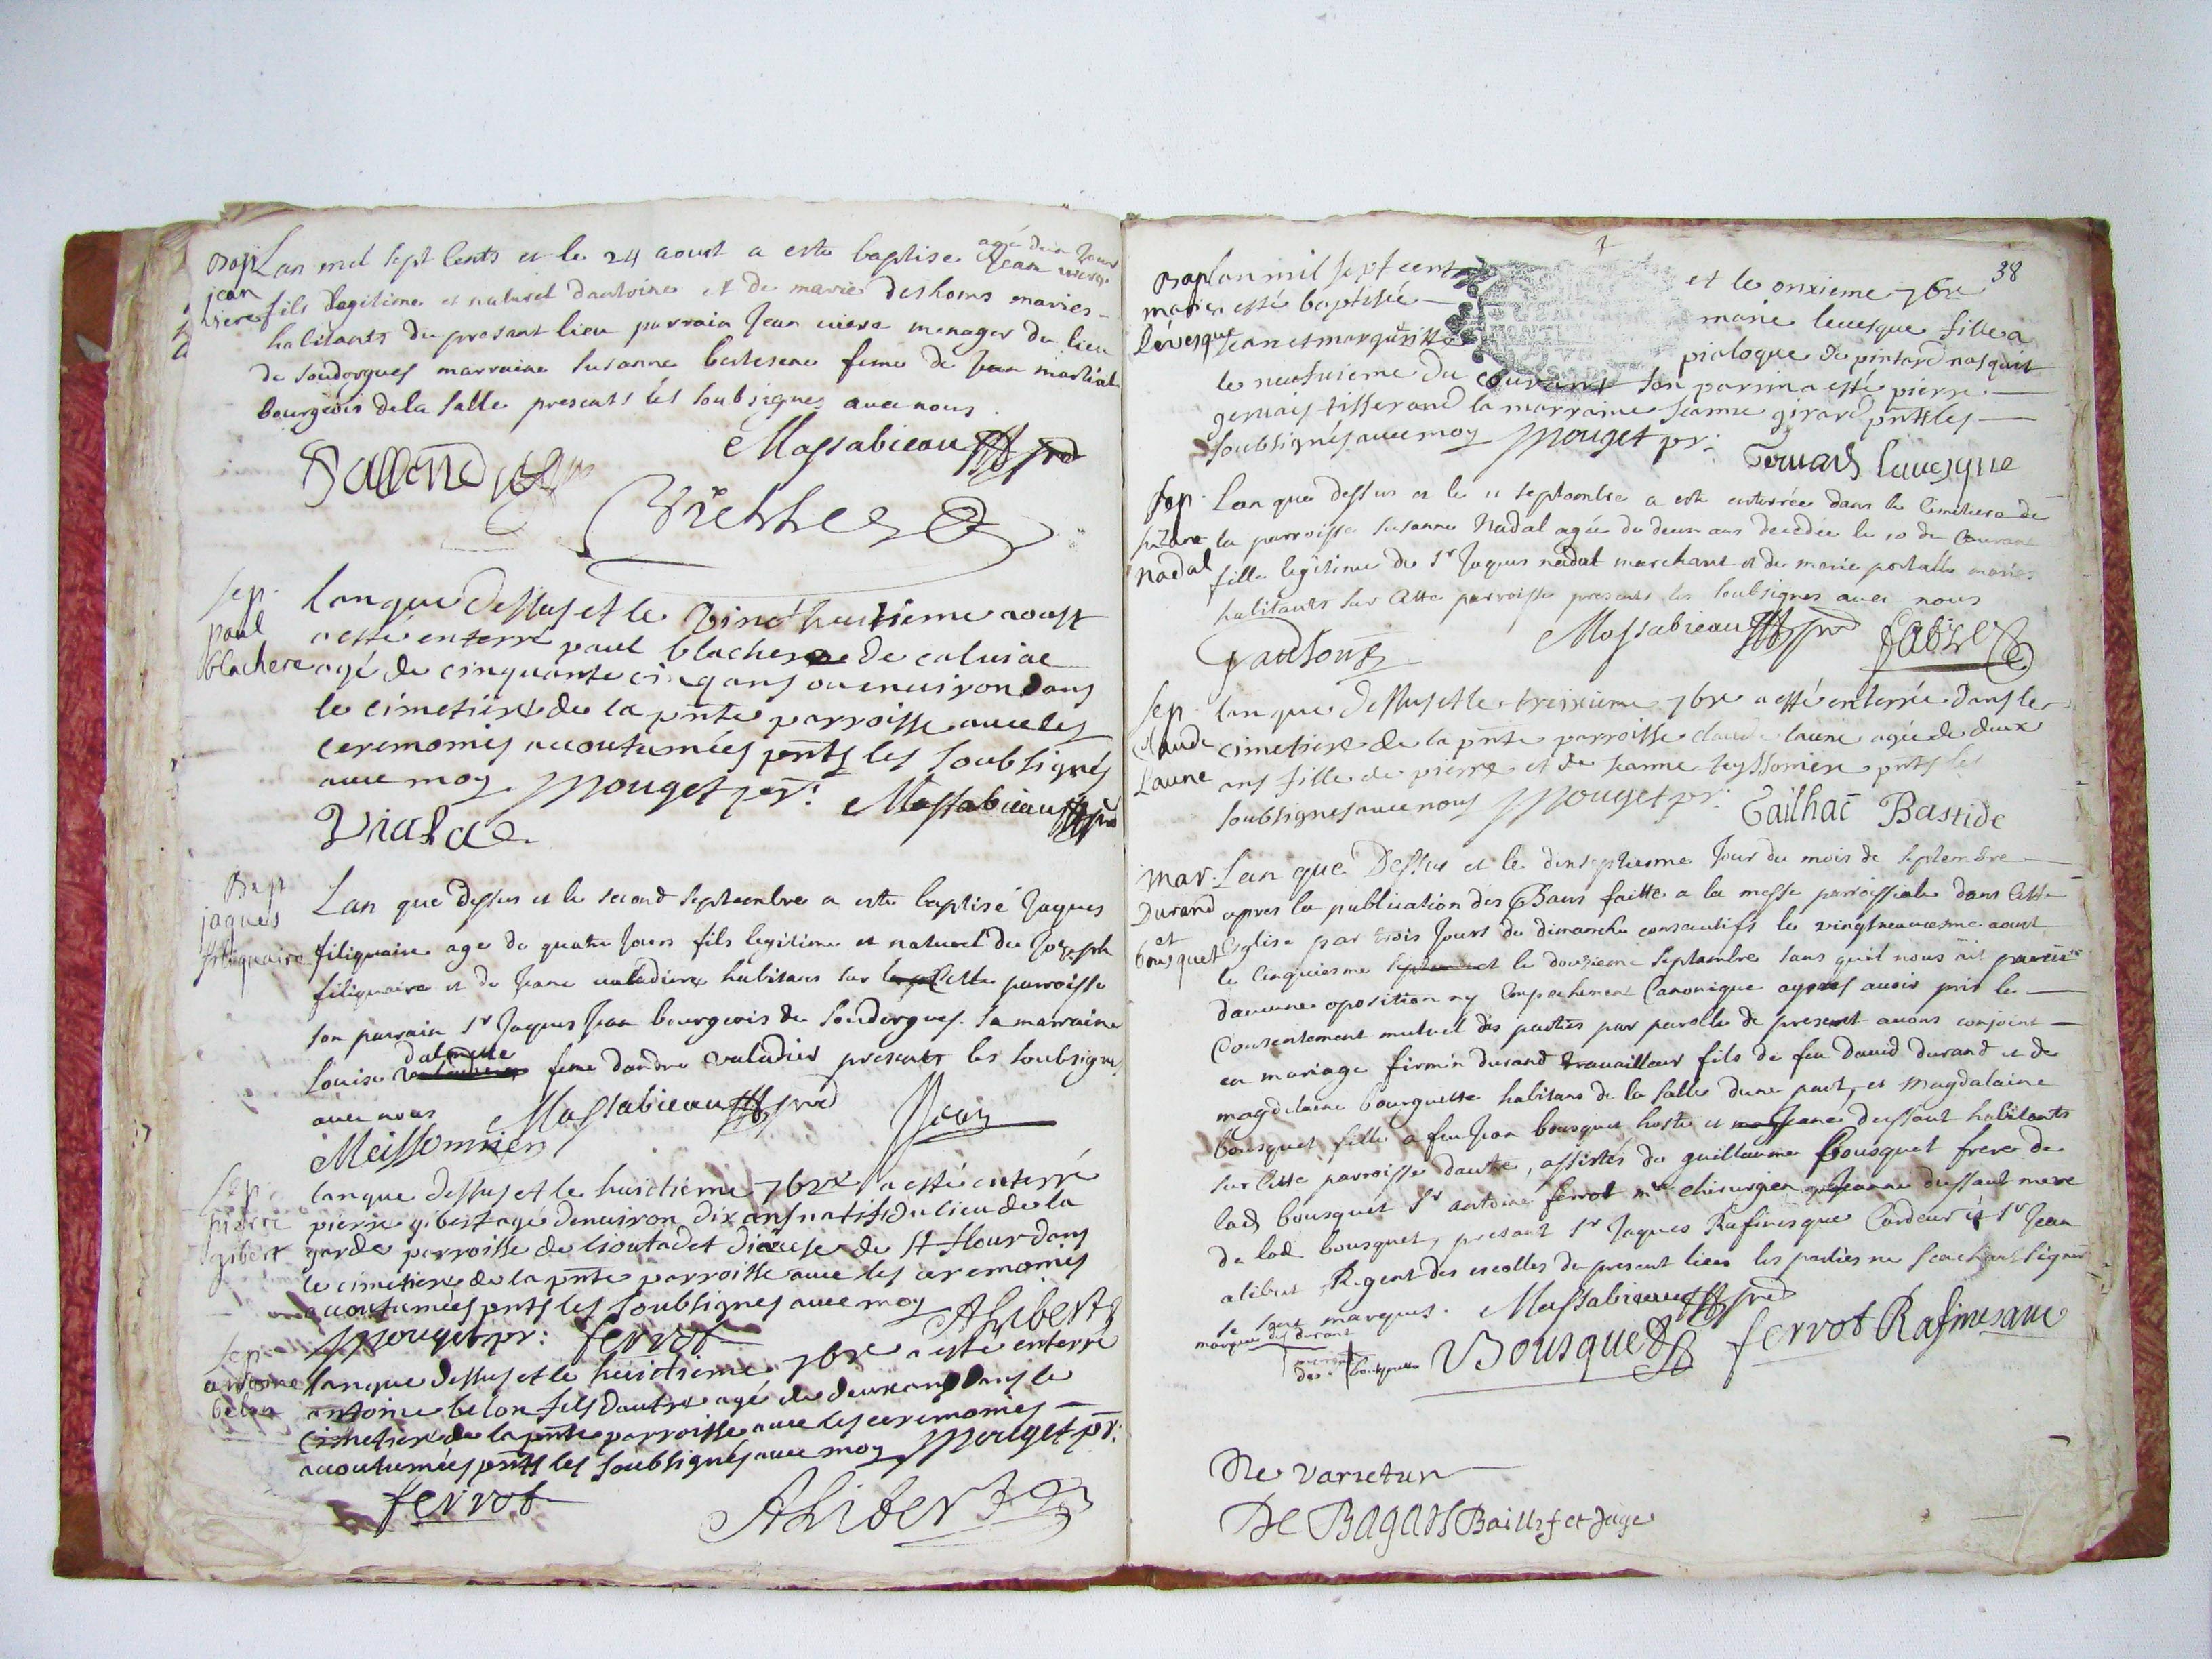 Bap
jean
viere
Lan mil sept cents et le 24 aoust a este baptise Jean viere
agé dun Jour
fils legitime et naturel dantoine et de marie deshons maries
habitants du presant lieu parrain Jean viere menager du lieu
de soudorgues marraine Susanne bertesene feme de Jean martial
bourgeois dela Salle presents les soubsignes avec nous
Massabieau prê
Sep.
paul
blachere
lan que dessus et le vint huitieme aoust
a esté enterré paul blachere de calviac
agé de cinquante cinq ans ou environ dans
le cimetiere de la pnte parroisse avec les
ceremonies accoutumées pnts les soubsignés
avec moy Mouget pr:
Massabieau prê
Viala
Bap
jaques
filiquaire
Lan que dessus et le second septembre a este baptisé Jaques
filiquaire age de quatre jours fils legitime et naturel de Joseph
filiquaire et de Jane valadiere habitans sur cette parroisse
son parrain Sr Jaques Jean bourgeois de Soudorgues. Sa marraine
Louise feme dandre valadier presents les soubsignes
avec nous Massabieau prê Jean
Meissonnier
Sep.
pierre
gibert
lan que dessus et le huictieme 7bre a esté enterré
pierre gibert agé denviron dix ans natif du lieu de la
garde parroisse de lioutadet diocese de St flour dans
le cimetiere de la pnte parroisse avec les ceremonies
accoutumées pnts les soubsignes avec moy
Mouget pr: ferrot Alibert
Sep.
antoine
belon
lan que dessus et le huictieme 7bre a esté enterré
antoine belon fils dautre agé de deux ans dans le
cimetiere de la pnte parroisse avec les ceremonies
accoutumées pnts les soubsignés avec moy Mouget pr:
ferrot Alibert
38
Bap
marie
lévesque
lan mil sept cent et le onzieme 7bre
a esté baptisée marie levesque fille a
Jean et margueritte pieloque de pintard nasquit
le neufvieme du courant son parrin a esté pierre
gervais tisserand la marraine Jeanne girard pntsles
soubsignés avec moy Mouget pr:
Gervais levesque
Sep.
Suzane
nadal
Lan que dessus et le 11 septembre a este enterrée dans le Cimetiere de
la parroisse susanne Nadal agée de deux ans decedée le 10 du Courant
fille legitime de Sr Jaques nadal marchant et de marie portalle maries
habitants sur cette parroisse presents les soubsignes avec nous
Massabieau prê fabre
Sep.
claude
Laune
lan que dessus et le treizieme 7bre a esté enterrée dans le
cimetiere de la pnte parroisse claude laune agée de deux
ans fille de pierre et de Jeanne teyssonniere pnts les
soubsignes avec nous Mouget pr:
Tailhac Bastide
Mar.
Durand
et
bousquet
Lan que Dessus et le dixseptiesme Jour du mois de septembre
apres la publication des Bans faitte a la messe parroissiale dans Cette
Eglise par trois Jours de dimanche consecutifs le vingtneuviesme aoust
le Cinquiesme et le douzieme Septembre sans quil nous ait paru
daucune oposition ny Empechement Canonique apres avoir pris le
Consentement mutuel des parties par parolle de present avons conjoint
en mariage firmin durand travailleur fils de feu David durand et de
magdelaine bourguette habitans de la Salle dune part, et Magdalaine
bousquet fille a feu Jean bousquet hoste et Jeane dussaut habitants
sur Cette parroisse dautre, assistés de guillaume Bousquet frere de
lad bousquet Sr antoine ferrot mre chirurgien Jeanne dussaut mere
de lad bousquet, presant Sr Jaques Rafinesque Cardeur et Sr Jean
alibert Regent des escolles du present lieu les parties ne seachant signer
se sont marques. Massabieau prê
marque dud durant
marque
de bousquette
Bousquet ferrot Rafinesque
Ne varietur
De Bagars Baillif et Juge